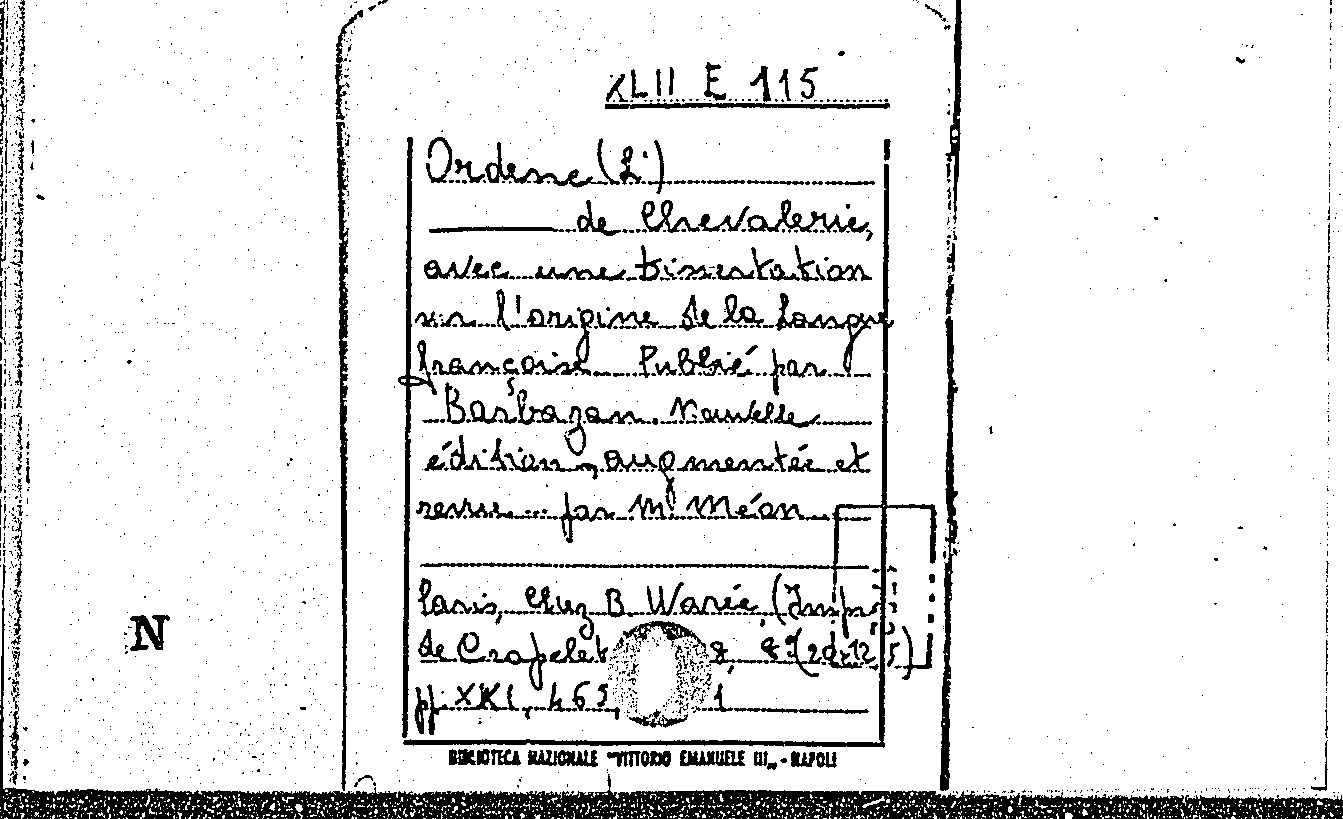 XLII E 115
Ordene (L')
de Chevalerie,
avec une dissertation
sur l'origine de la Langue
françoise. Publié par
Barbazan. Nouvelle
édition, augmentée et
revue... par M. Méon
Paris, Chez B. Warée, (Impr
de Crapelet 8, 8°
pp. XXI, 463, 1
BIBLIOTECA NAZIONALE "VITTORIO EMANUELE III" - NAPOLI
N